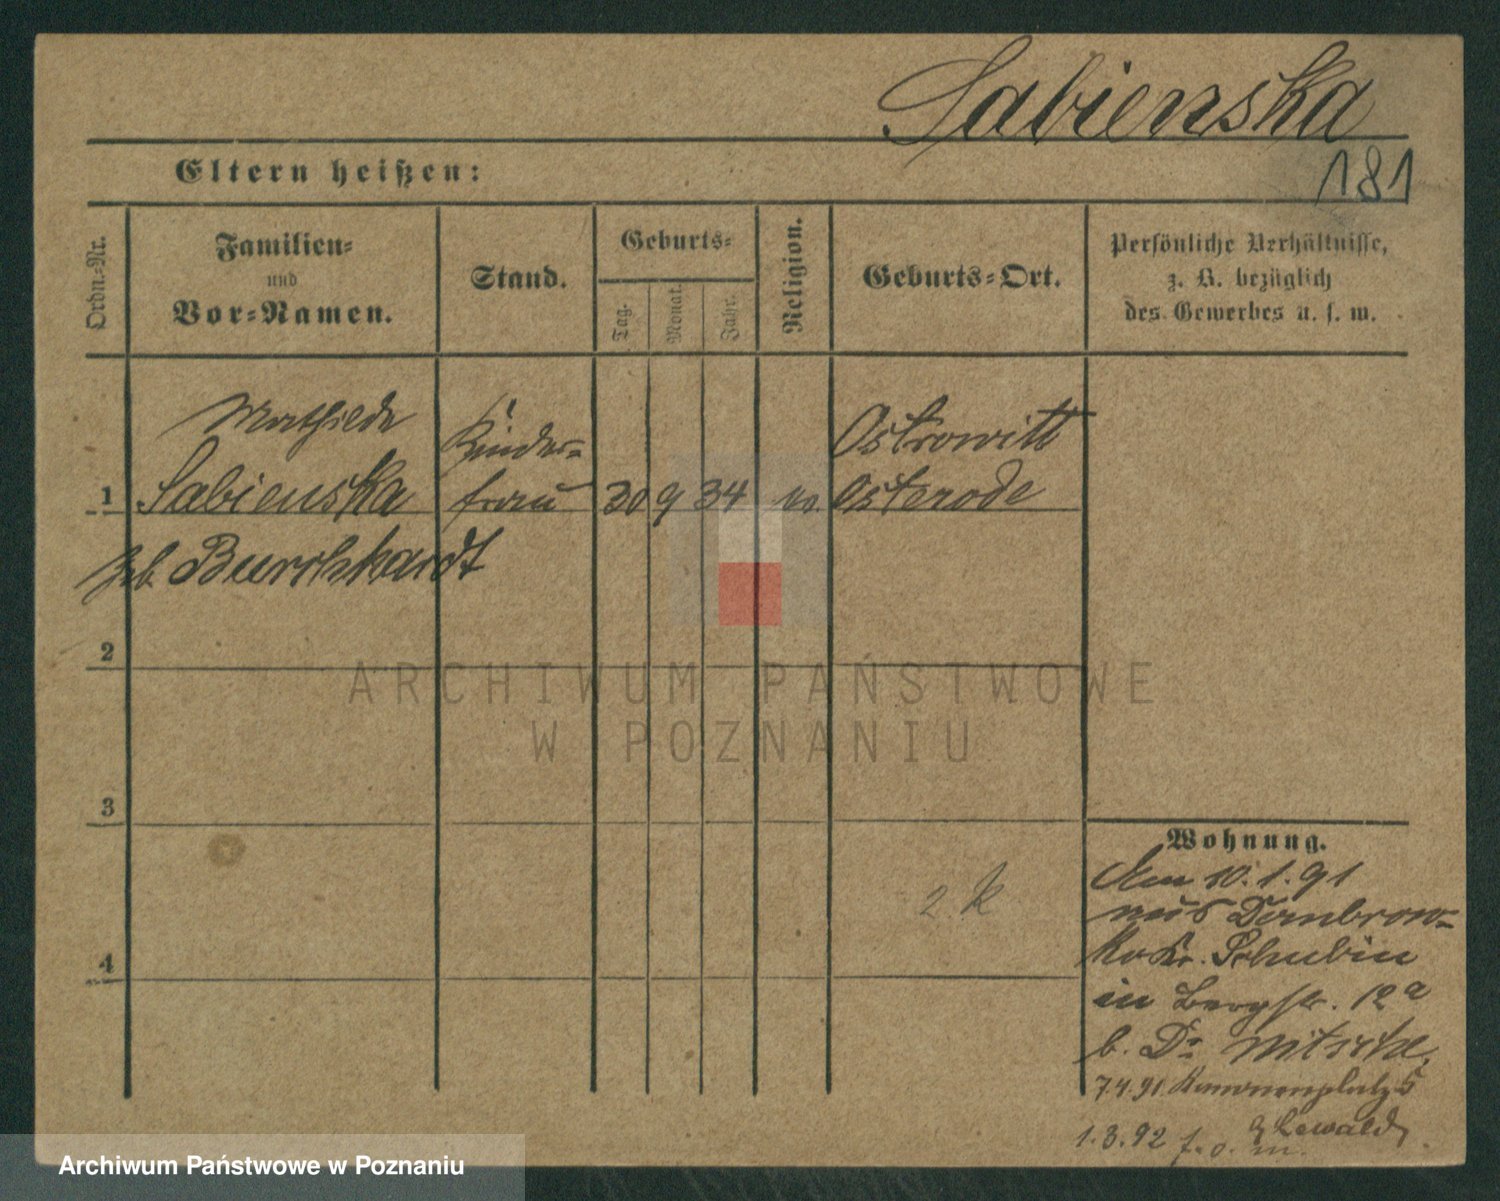 Sabienska
181
Eltern heißen:
Ordn=Nr.
Familien=
und
Vor=Namen.
Stand.
Geburts=
Tag.
Monat.
Jahr.
Religion.
Geburts=Ort.
Persönliche Verhältnisse,
z. B. bezüglich
des Gewerbes u. s. w.
Mathilde
Sabienska
geb. Burchhardt
Kinder=
frau
30 9 34
Ostrowitt
Osterode
1
2
3
4
2 K
Wohnung.
Am 10.1.91
aus Dombrow=
ko Kr. Schubin
in Bergstr. 12a
b. Dr Nitsche,
7.4.91. Kanonenplatz 5
Lewald
1.3.92
ARCHIWUM PAŃSTWOWE
W POZNANIU
Archiwum Państwowe w Poznaniu